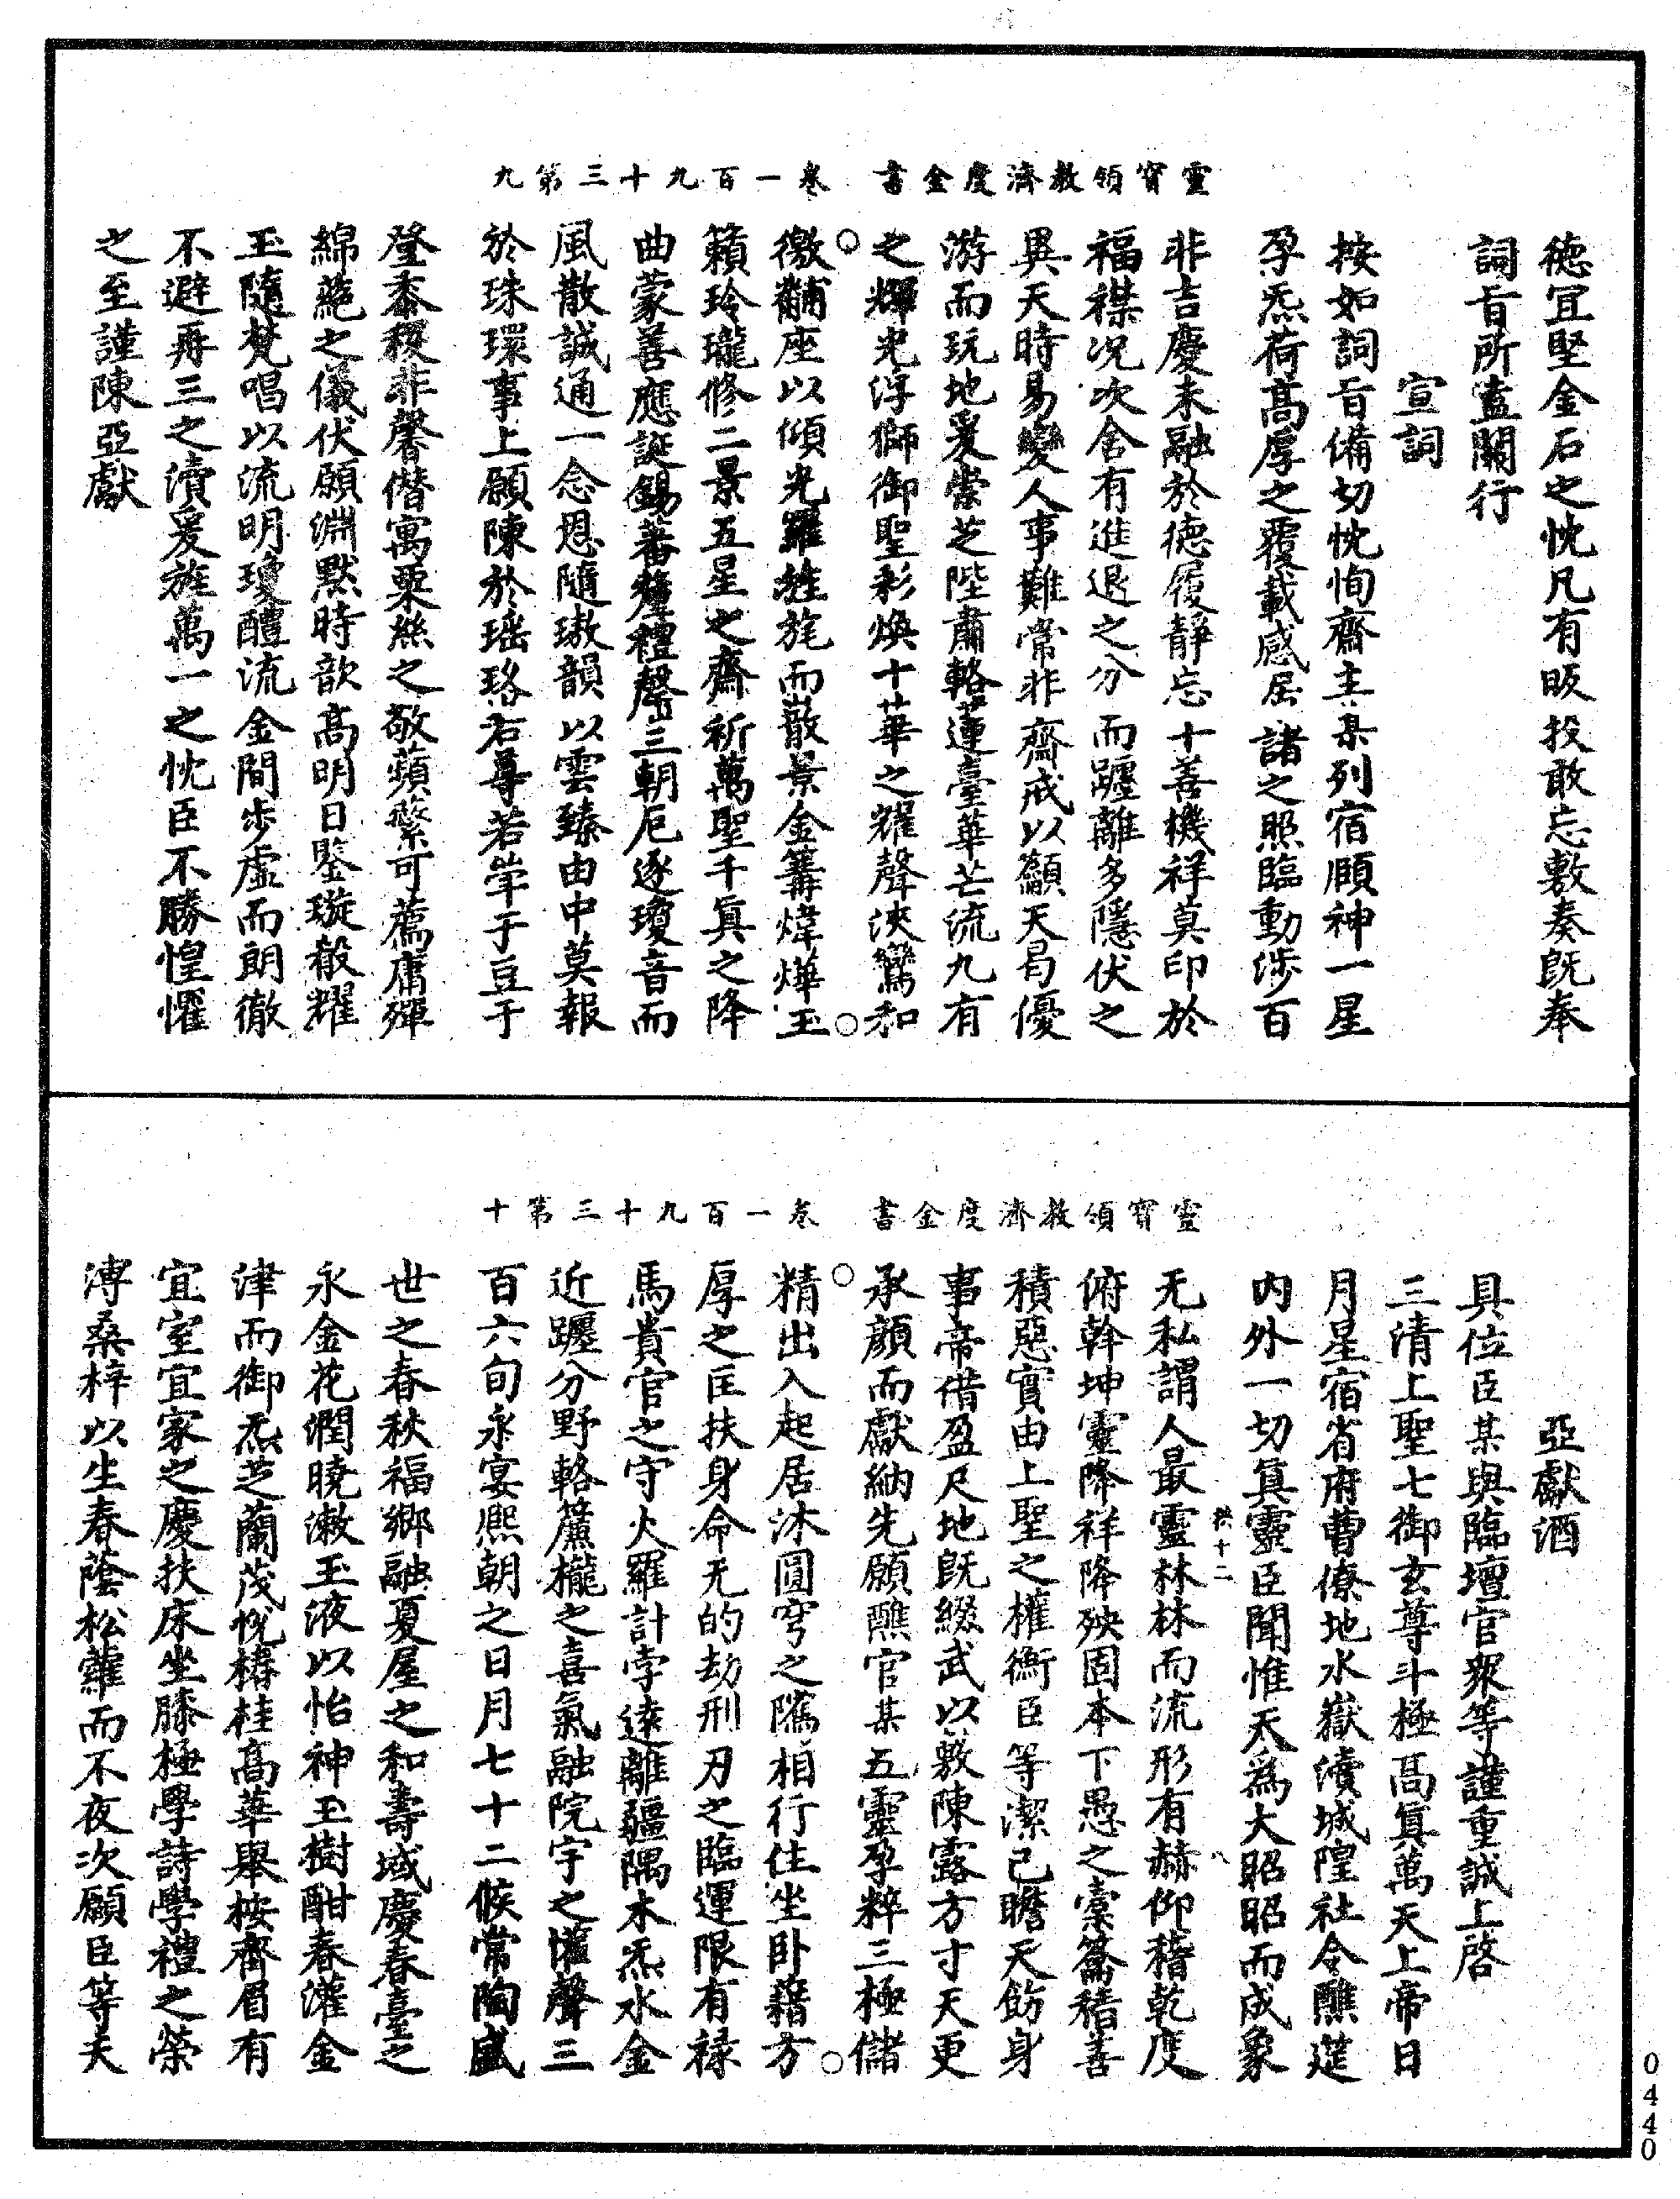 德宜堅金石之忱凡有昄投敢忘敷奏旣奉
詞旨所盍關行
宣詞
按如詞旨備切忱恂齋主某列宿頤神一星
孕炁荷高厚之覆載感居諸之照臨動渉百
非吉慶未融於德履靜忘十善機祥莫印於
福禖况次舍有進退之分而躔離多隱伏之
異天時易變人事難常非齋戒以籲天曷優
游而玩地爰崇芝陛肅輅蓮臺華芒流九有
靈寶領教濟度金書 卷一百九十三第九
之輝光浮獅御聖彩煥十華之耀聲浹鸞和
徼黼座以傾光羅旌旄而散景金籌煒燁玉
籟玲瓏修二景五星之齋祈萬聖千眞之降
曲蒙善應誕錫蕃釐禮罄三朝卮逐瓊音而
風散誠通一念恩隨璈韻以雲臻由中莫報
於珠環事上願陳於瑶珞右尊若崋于豆于
登黍稷非馨僭寓栗絲之敬蘋蘩可薦庸殫
綿蕝之儀伏願淵默時歆高明日鑒璇殽耀
玉隨梵唱以流明瓊醴流金間步虛而朗徹
不避再三之瀆爰旌萬一之忱臣不勝惶懼
之至謹陳亞獻
亞獻酒
具位臣某與臨壇官衆等謹重誠上啓
三清上聖七御玄尊斗極高眞萬天上帝日
月星宿省府曹僚地水嶽瀆城隍社令醮筵
内外一切眞靈臣聞惟天爲大昭昭而成象
无私謂人最靈林林而流形有赫仰稽乾度
俯幹坤靈降祥降殃固本下愚之橐籥稽善
積惡實由上聖之權衡臣等潔己瞻天飭身
事帝借盈尺地旣綴武以敷陳露方寸天更
靈寶領教濟度金書 卷一百九十三第十
承顔而獻納先願醮官某五靈孕粹三極儲
精出入起居沐圓穹之隲相行住坐卧藉方
厚之匡扶身命无的劫刑刃之臨運限有禄
馬貴官之守火羅計孛逵離疆隅木炁水金
近躔分野輅簾櫳之喜氣融院宇之懽聲三
百六旬永宴熙朝之日月七十二候常陶盛
世之春秋福鄉融夏屋之和壽域慶春臺之
永金花潤曉漱玉液以怡神玉樹酣春灌金
津而御炁芝蘭茂悅椿桂高華舉桉齊眉有
宜室宜家之慶扶床坐膝極學詩學禮之榮
溥桑梓以生春蔭松蘿而不夜次願臣等夫
0440